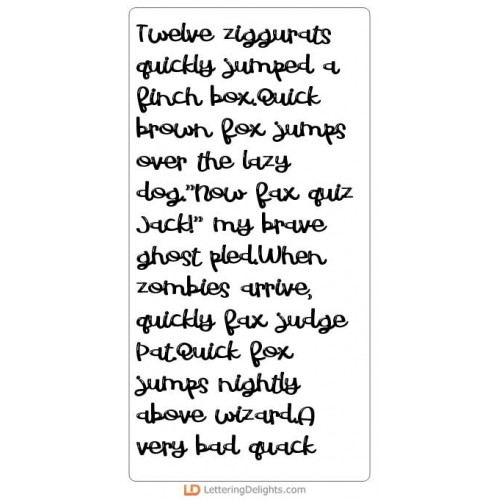 Twelve ziggurats
quickly jumped a
finch box.Quick
brown fox jumps
over the lazy
dog."Now fax quiz
Jack!" my brave
ghost pled.When
zombies arrive,
quickly fax judge
Pat.Quick fox
jumps nightly
above wizard.A
very bad quack
LD LetteringDelights.com